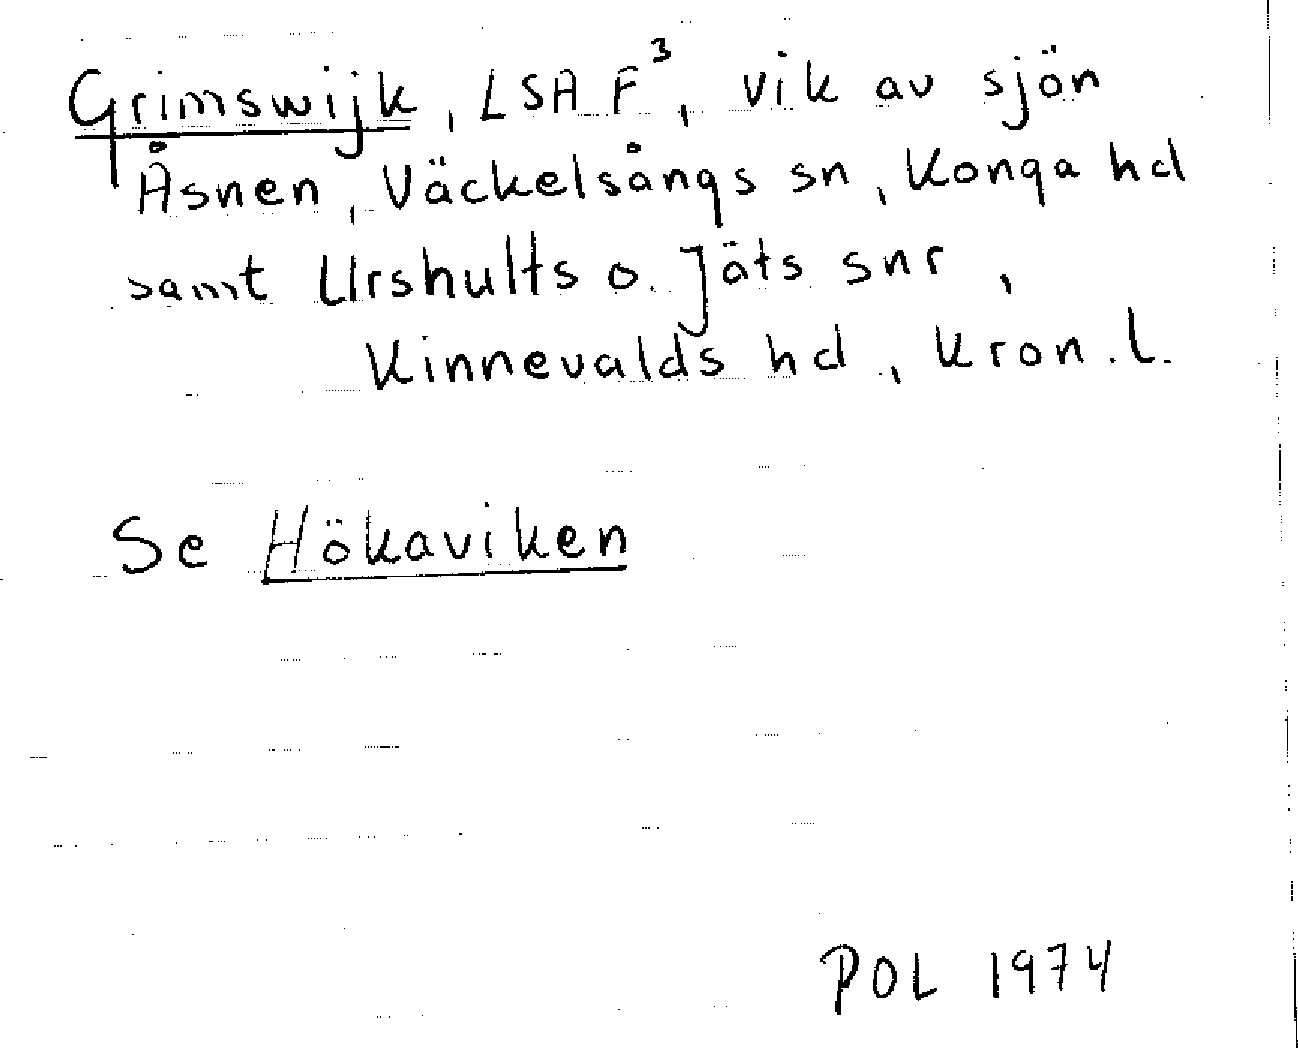 Grimswijk, LSA F³, vik av sjön
Åsnen, Väckelsångs sn, Konga hd
samt Urshults o. Jäts snr,
Kinnevalds hd, Kron.l.
Se Hökaviken
POL 1974